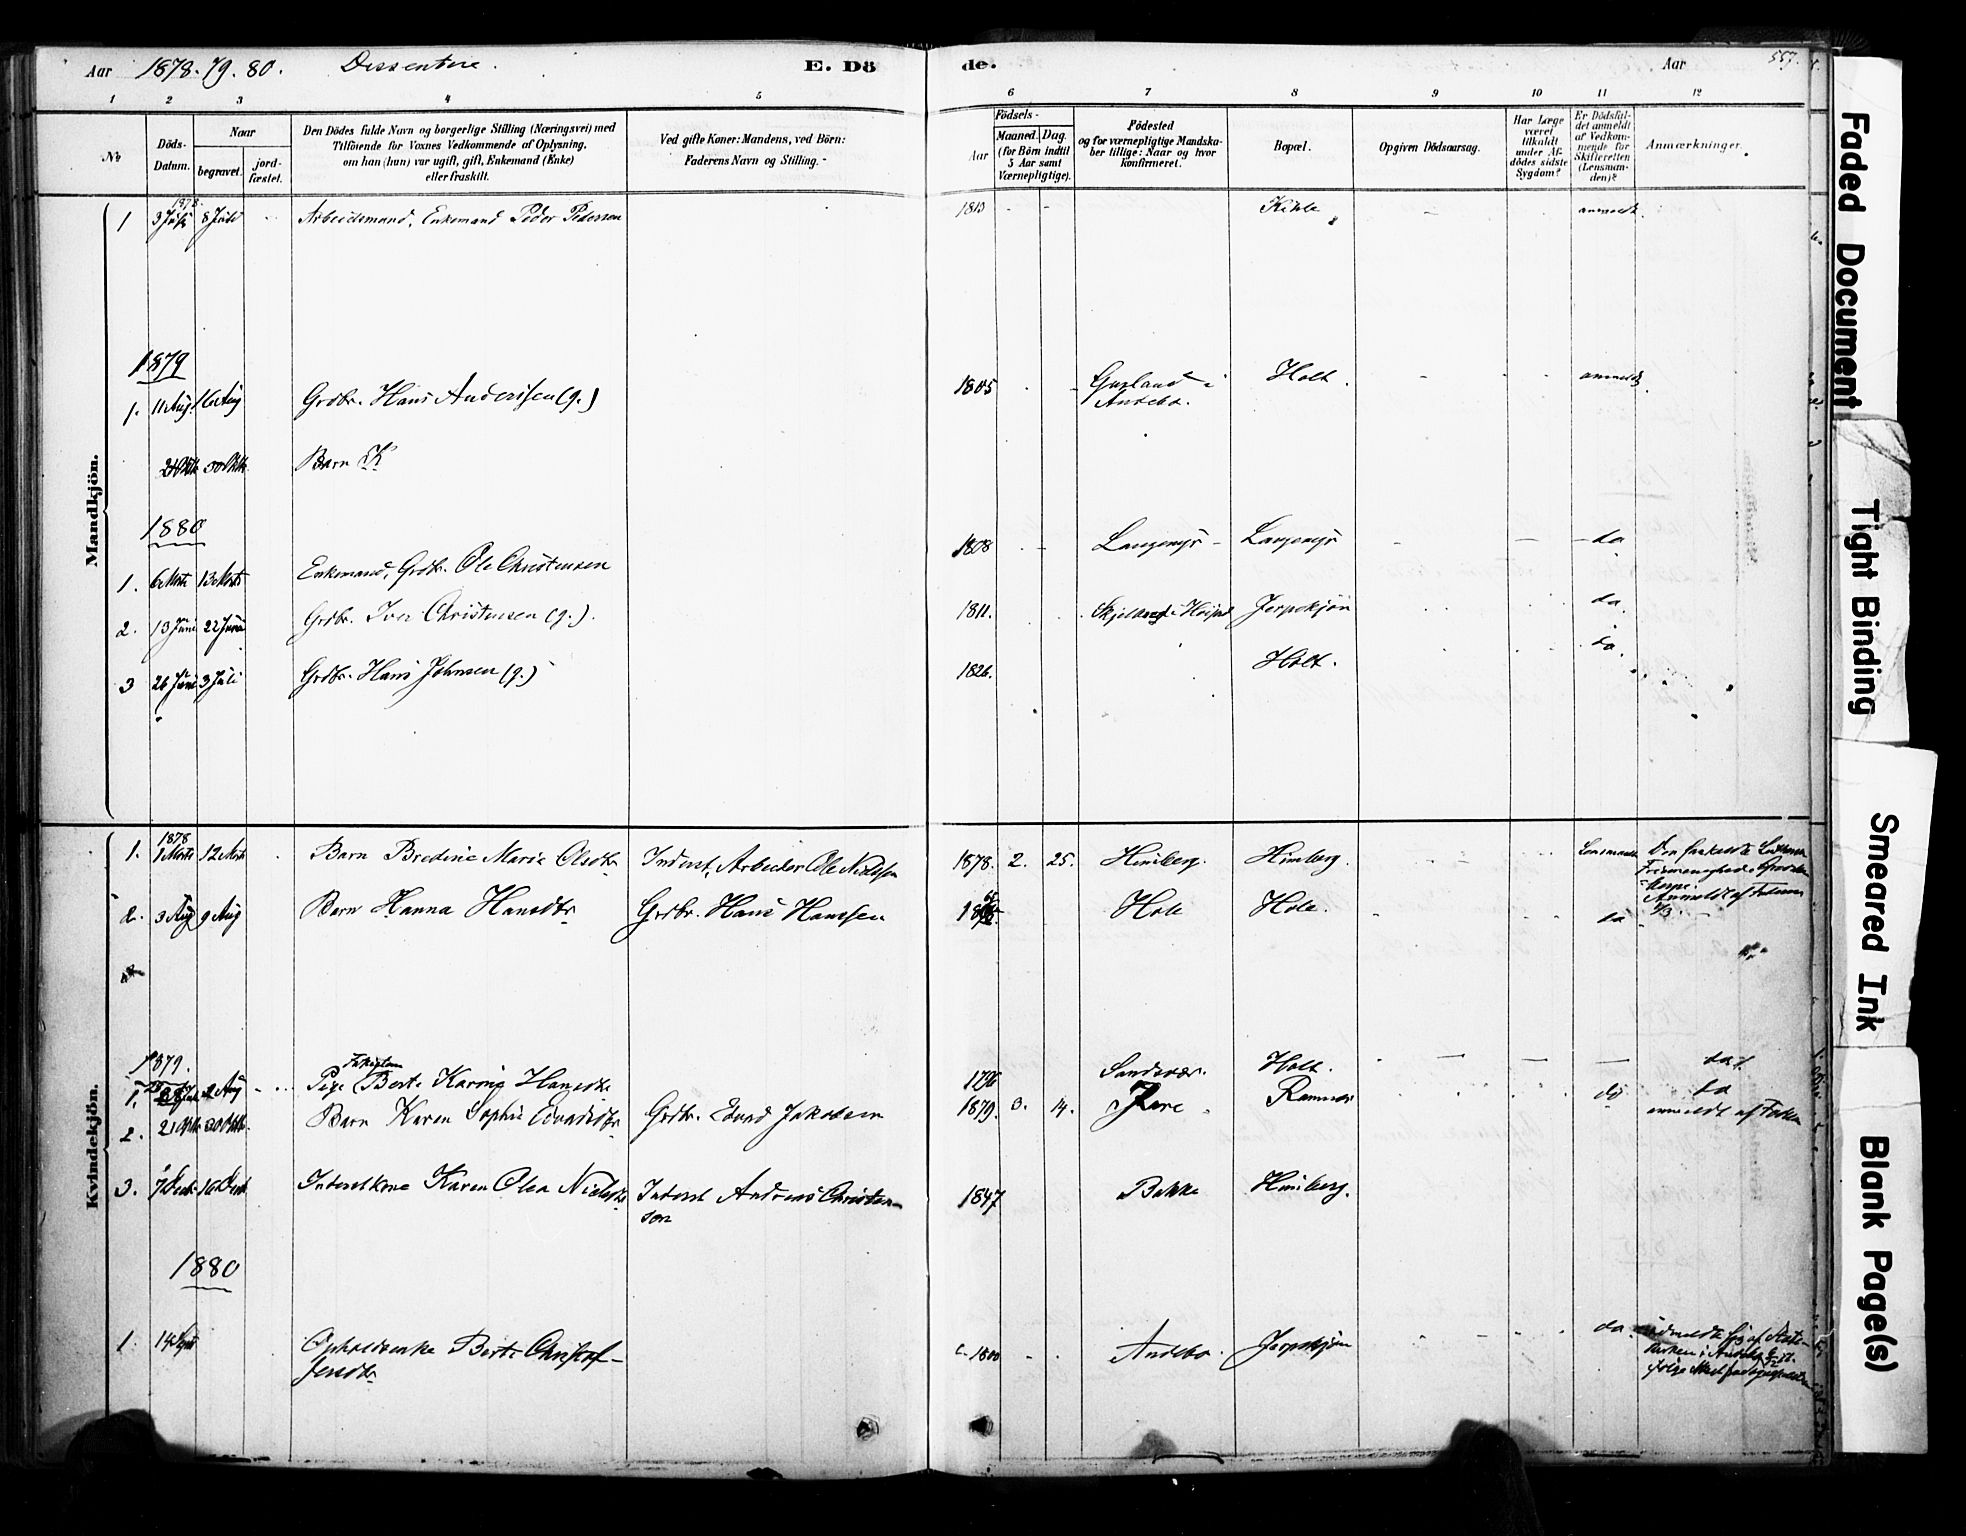 Aar 1878. 79. 80. Dissentere. E. Dö
de. Aar 557.
1 2 3 4 5
6 7 8 9 10 11 12
No
Döds-
Datum.
Naar
begravet.
jord-
fæstet.
Den Dödes fulde Navn og borgerlige Stilling (Næringsvei) med
Tilföiende for Voxnes Vedkommende af Oplysning,
om han (hun) var ugift, gift, Enkemand (Enke)
eller fraskilt.
Ved gifte Koner: Mandens, ved Börn:
Faderens Navn og Stilling.
Födsels-
Aar
Maaned. Dag.
(for Børn indtil
5 Aar samt
Værnepligtige).
Födested
og for værnepligtige Mandska-
ber tillige: Naar og hvor
konfirmeret.
Bopæl.
Opgiven Dödsaarsag.
Har Læge
været
tilkaldt
under Af-
dödes sidste
Sygdom?
Er Dödsfal-
det anmeldt
af Vedkom-
mende for
Skifteretten
(Lensman-
den)?
Anmærkninger.
Mandkjön.
1878
1 3 Juli 8 Juli Arbeidsmand, Enkemand Peder Pedersen 1813 - - - anmeldt.
1879
1. 11 Aug. 16 Aug Grdbr. Hans Anderssen (g.) 1805 - Holt. - anmeldt
Andebo.
Barn K
1880
1. 6 Marts 13 Marts Enkemand, Grdbr. Ole Christensen 1808 - Langemyr - Langemyr - - - da
2. 13 Juni 22 Juni Grdbr. Iver Christensen (g.). 1811. Jerpekjøn da.
3 26 Juni 3 Juli Grdbr. Hans Johnsen (g.) 1826. Holt. da.
Kvindekjön.
1878
1. 1 Marts 12 Marts Barn Bredine Marie Olsdtr Inderst, Arbeider Ole Nielssen 1878. 2. 25. Himberg. Himberg. Den
Anmeldt af
2. 3 Aug 9 Aug Barn Hanna Hansdtr Grdbr. Hans Hanssen Hole Hole. da
1879.
1. 2 Aug Pige Berte Karine Hansdtr 1796 Sandsvær. Holt. - - - -
2. 21 Oktb. 30 Oktb. Barn Karen Sophie Edvardsdtr Grdbr. Edvard Jakobsen 1879. 3. 14. Ramnæs do da
anmeldt af Faderen
3. 7 Decb. 16 Decb. Inderstkone Karen Olea Nielsdtr Inderst Andreas Christen-
sen 1847 Bakke Himberg.
1880
1. 14 Sept Opholdsenke Berte Christof-
fersdtr c. 1800 - Andebo. Jerpekjøn da.
Faded Document
Tight Binding
Smeared Ink
Blank Page(s)